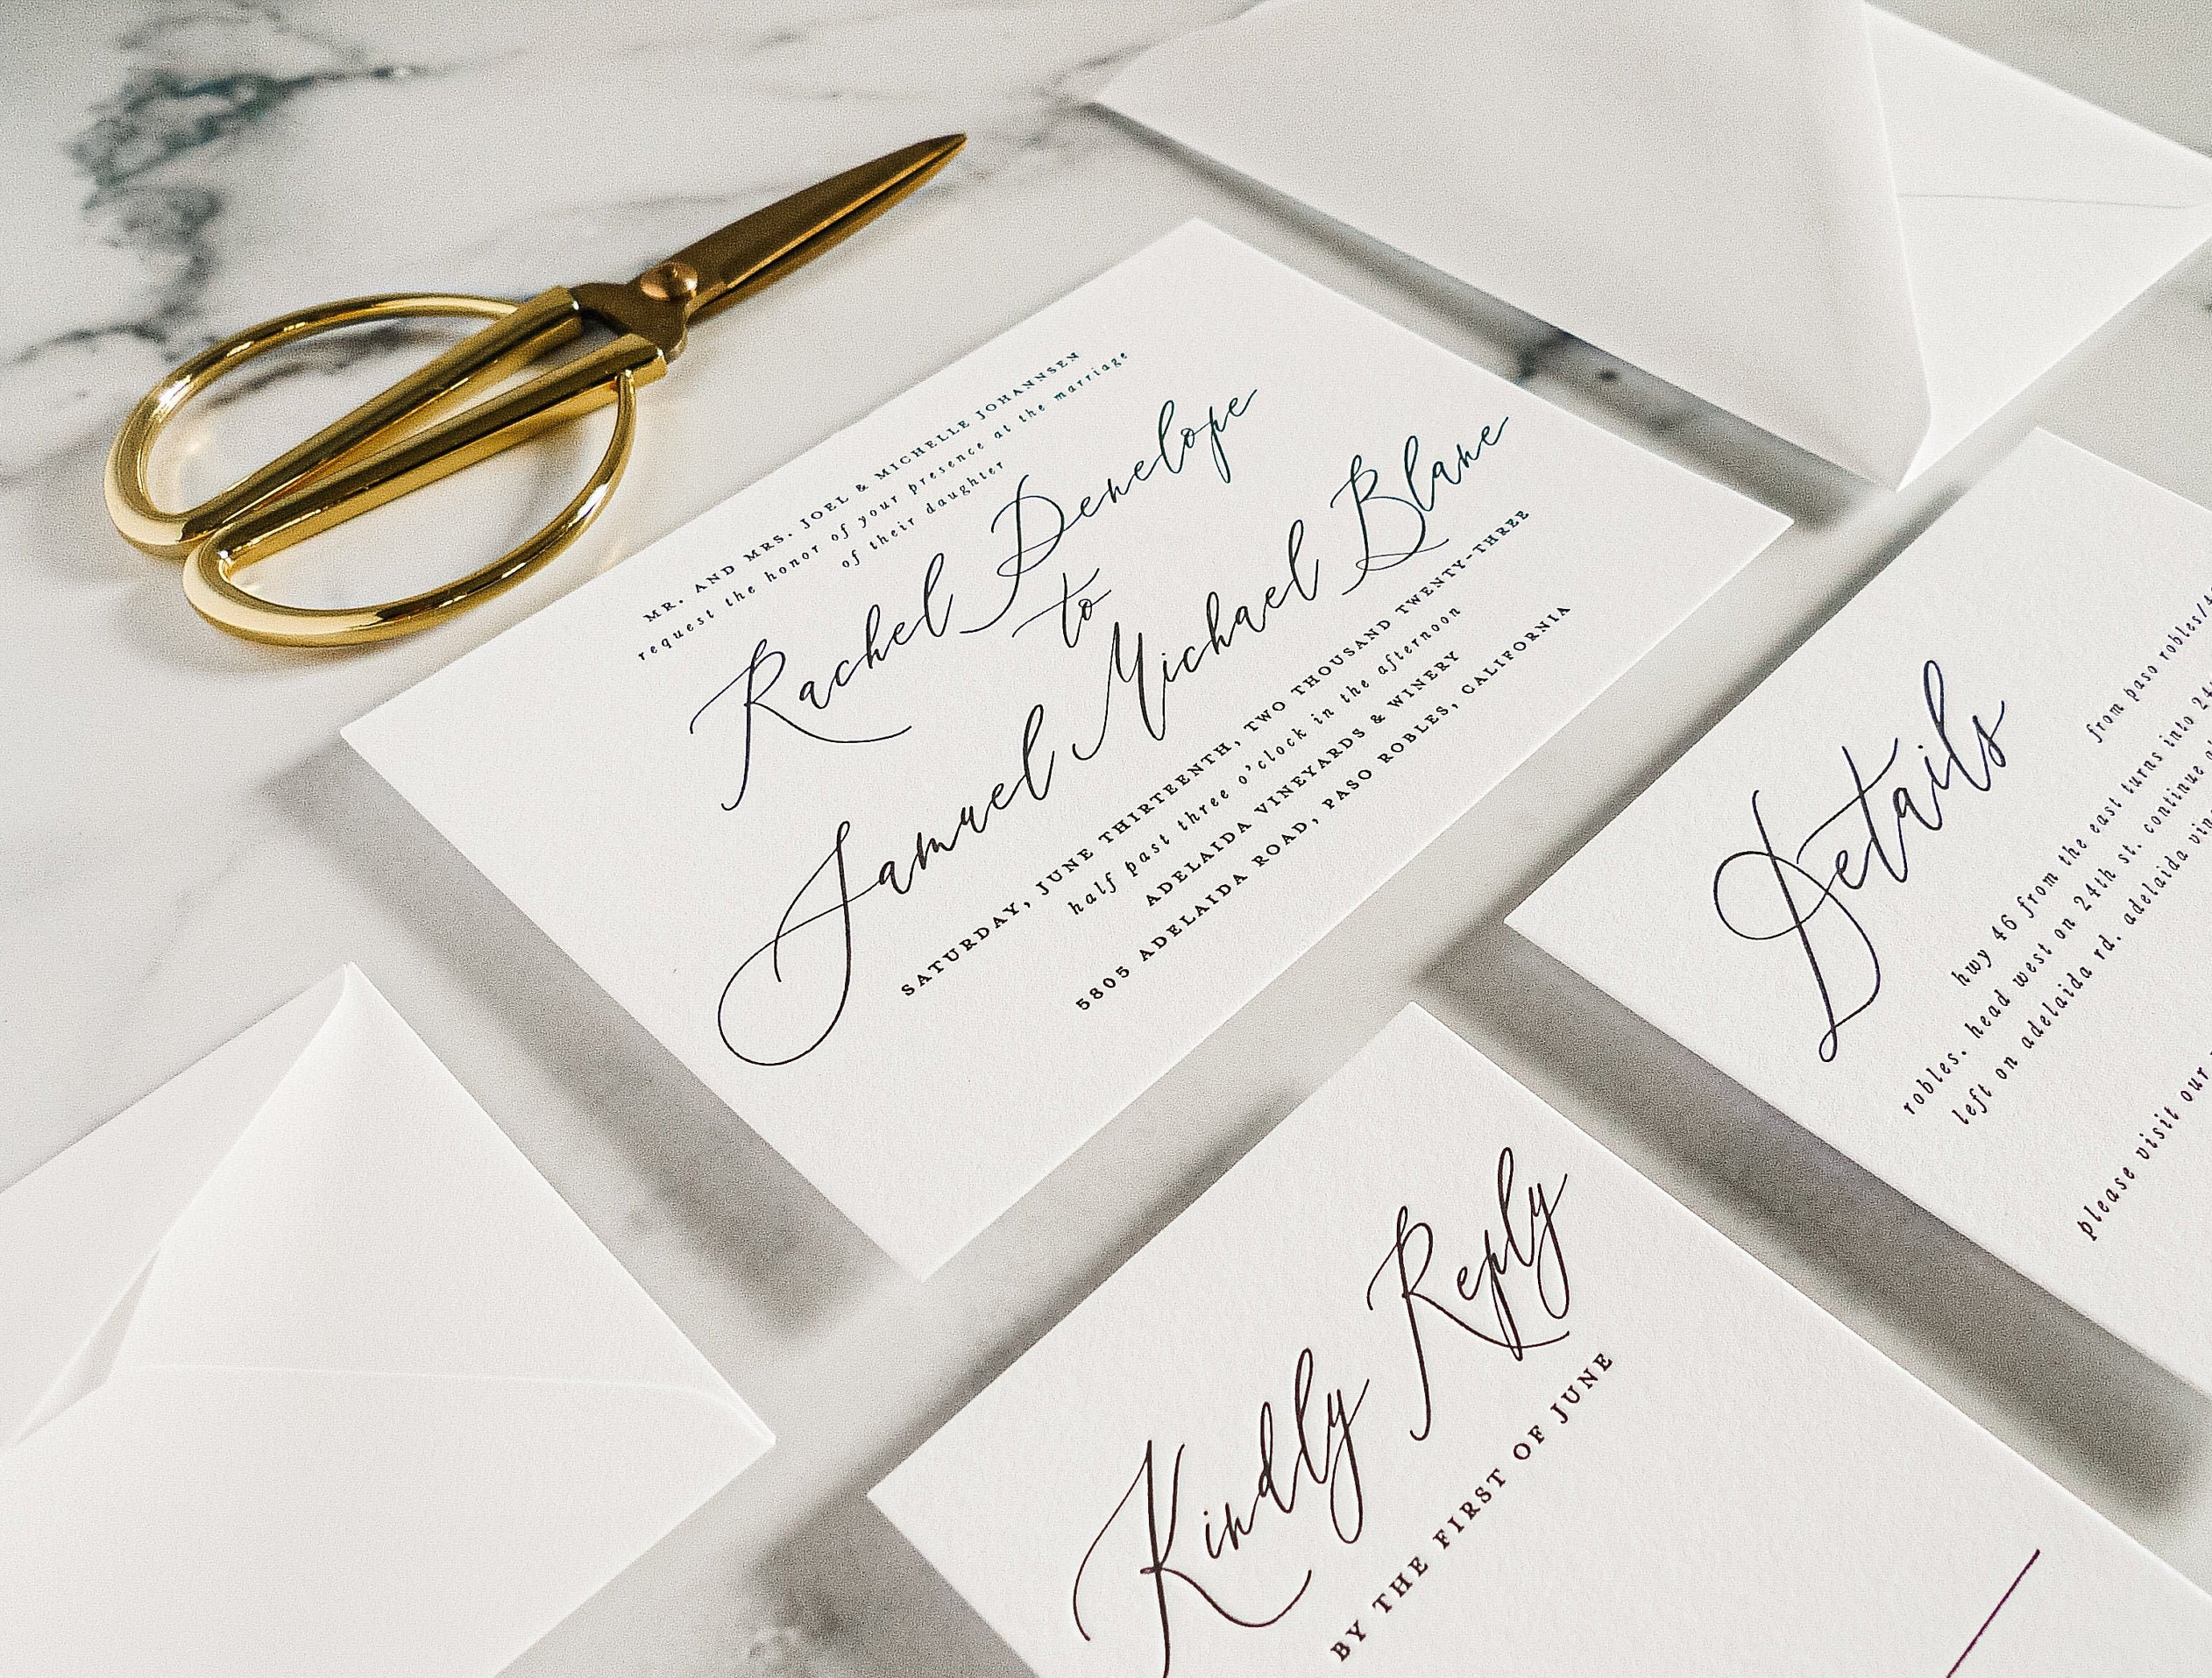 MR. AND MRS. JOEL & MICHELLE JOHANNSEN
request the honor of your presence at the marriage
of their daughter
Rachel Penelope
to
Samuel Michael Blane
SATURDAY, JUNE THIRTEENTH, TWO THOUSAND TWENTY-THREE
half past three o'clock in the afternoon
ADELAIDA VINEYARDS & WINERY
5805 ADELAIDA ROAD, PASO ROBLES, CALIFORNIA
Details
from paso robles/
hwy 46 from the east turns into
robles. head west on 24th st. continue
left on adelaida rd. adelaida
please visit our
Kindly Reply
BY THE FIRST OF JUNE